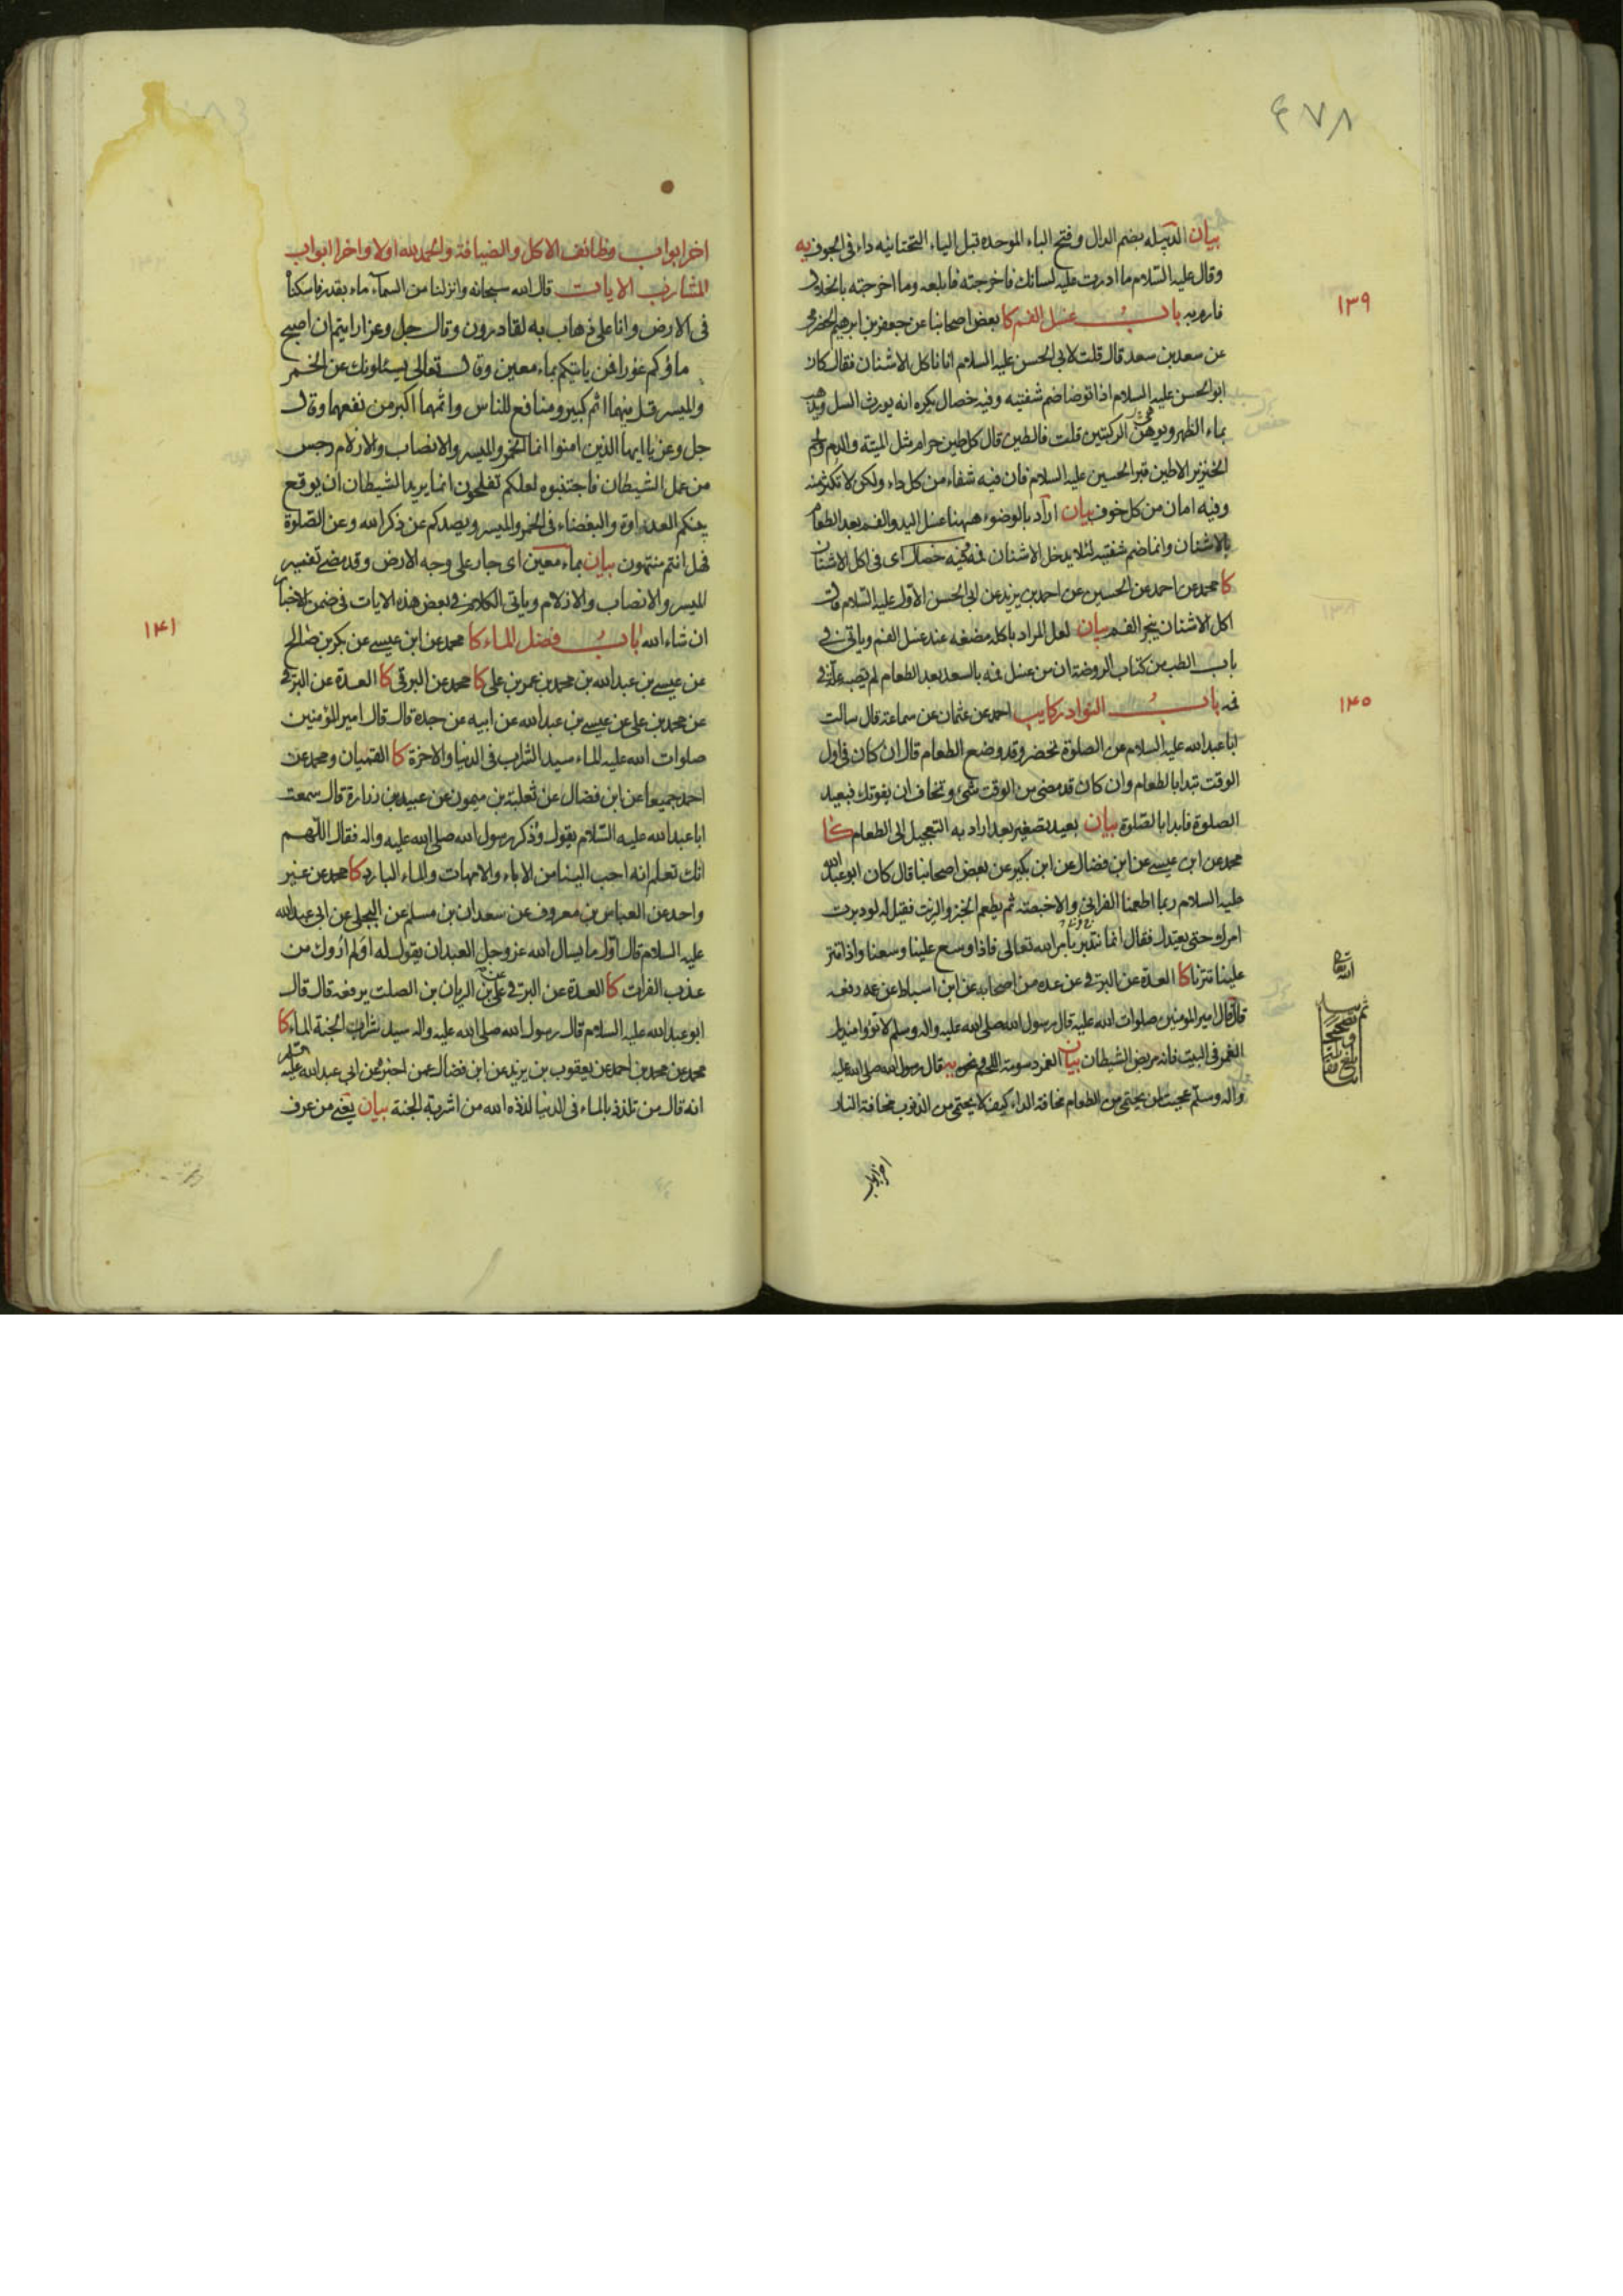 ٤٧٨
بيان الدبيله بضم الدال و فتح الباء الموحده قبل الياء التحتانيه داء فى الجوف يه
وقال عليه السّلام ما ادرت عليه لسانك فاخرجته فابلعه وما اخرجته بالخلال
فارم به باب غسل الفم كا بعض اصحابنا عن جعفر بن ابرهيم الحضرمى
١٣٩
عن سعد بن سعد قال قلت لابى الحسن عليه السلام انا ناكل الاشنان فقال كان
ابو الحسن عليه السلام اذا توضا ضم شفتيه وفيه خصال يكره انه يورث السل ويذهب
بماء الظهر ويوهن الركبتين قلت فالطين قال كل طين حرام مثل الميتة والدم ولحم
الخنزير الا طين قبر الحسين عليه السلام فان فيه شفاء من كل داء ولكن لا تكثر منه
وفيه امان من كل خوف بيان اراد بالوضوء ههنا غسل اليد والفم بعد الطعام
بالاشنان وانما ضم شفتيه لئلا يدخل الاشنان فمه وفيه خصال اى فى اكل الاشنان
كا محمد عن احمد عن الحسين عن احمد بن يزيد عن ابى الحسن الاول عليه السلام قال
اكل الاشنان يبخر الفم بيان لعل المراد باكله مضغه عند غسل الفم وياتى فى
باب الطب من كتاب الروضة ان من غسل فمه بالسعد بعد الطعام لم تصبه علة فى
فمه باب النوادر كا يب احمد عن عثمان عن سماعة قال سالت
١٤٠
ابا عبد الله عليه السلام عن الصلوة تحضر وقد وضع الطعام قال ان كان فى اول
الوقت تبدا بالطعام وان كان قد مضى من الوقت شئ وتخاف ان يفوتك فبعيد
الصلوة فابدا بالصّلوة بيان بعيد تصغير بعد اراد به التعجيل الى الطعام كا
محمد عن ابن عيسى عن ابن فضال عن ابن بكير عن بعض اصحابنا قال كان ابو عبد الله
عليه السلام ربما اطعمنا الفرانى والاخبصة ثم يطعم الخبز والزيت فقيل له لو دبرت
امرك حتى يعتدل فقال انما نتدبر بامر الله تعالى فاذا وسع علينا وسعنا واذا قتر
علينا قترنا كا العدة عن البرقى عن عده من اصحابه عن ابن اسباط عن عمه رفعه
قال قال امير المومنين صلوات الله عليه قال رسول الله صلى الله عليه واله وسلم لا تؤوا منديل
الغمر فى البيت فانه مربض الشيطان بيان الغمر دسومة اللحم ونحوه يه قال رسول الله صلى الله عليه
واله وسلم عجبت لمن يحتمى من الطعام مخافة الداء كيف لا يحتمى من الذنوب مخافة النار
اخر ابواب
اخر ابواب وظائف الاكل والضيافة والحمد لله اولا واخرا ابواب
المشارب الايات قال الله سبحانه وانزلنا من السماء ماء بقدر فاسكناه
فى الارض وانا على ذهاب به لقادرون وقال جل وعز ارايتم ان اصبح
ماؤكم غورا فمن ياتيكم بماء معين وقال تعالى يسئلونك عن الخمر
والميسر قل فيهما اثم كبير ومنافع للناس واثمهما اكبر من نفعهما وقال
جل وعز يا ايها الذين امنوا انما الخمر والميسر والانصاب والازلام رجس
من عمل الشيطان فاجتنبوه لعلكم تفلحون انما يريد الشيطان ان يوقع
بينكم العداوة والبغضاء فى الخمر والميسر ويصدكم عن ذكر الله وعن الصّلوة
فهل انتم منتهون بيان بماء معين اى جار على وجه الارض وقد مضى تفسير
الميسر والانصاب والازلام وياتى الكلام فى بعض هذه الايات فى ضمن الاخبار
ان شاء الله باب فضل الماء كا محمد عن ابن عيسى عن بكر بن صالح
١٤١
عن عيسى بن عبد الله بن محمد بن عمر بن على كا محمد عن البرقى كا العدة عن البرقى
عن محمد بن على عن عيسى بن عبد الله عن ابيه عن جده قال قال امير المؤمنين
صلوات الله عليه الماء سيد الشراب فى الدنيا والاخرة كا القميان ومحمد عن
احمد جميعا عن ابن فضال عن ثعلبة بن ميمون عن عبيد بن زرارة قال سمعت
ابا عبد الله عليه السّلام يقول وذكر رسول الله صلى الله عليه واله فقال اللّهم
انك تعلم انه احب الينا من الاباء والامهات والماء البارد كا محمد عن غير
واحد عن العباس بن معروف عن سعدان بن مسلم عن البجلى عن ابى عبد الله
عليه السلام قال اول ما يسال الله عز وجل العبد ان يقول له اولم اروك من
عذب الفرات كا العدة عن البرقى عن على بن الريان بن الصلت يرفعه قال قال
ابو عبد الله عليه السلام قال رسول الله صلى الله عليه واله سيد شراب الجنة الماء كا
محمد عن محمد بن احمد عن يعقوب بن يزيد عن ابن فضال عمن اخبره عن ابى عبد الله عليه السلام
انه قال من تلذذ بالماء فى الدنيا لذذه الله من اشربة الجنة بيان يعنى من عرف